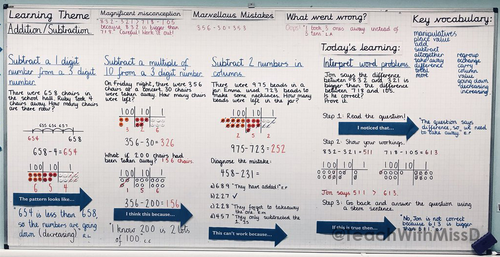 Learning Theme
Addition/Subtraction
Magnificent misconception
Marvellous Mistakes
356-30=353
What went wrong?
Key vocabulary:
manipulatives
place value
add
subtract
altogether
take away
difference
more
regroup
exchange
carry
column
value
going down
decreasing
increasing
Subtract a 1 digit
number from a 3 digit
number
There were 658 chairs in
the school hall. Ruby took 4
chairs away. How many chairs
are there now?
658-4=654
6 5 4
The pattern looks like...
"654 is less than 658,
so the numbers are going
down (decreasing)
Subtract a multiple of
10 from a 3 digit number
On Friday night, there were 356
people at a concert. 30 chairs
were taken away. How many chairs
were left?
356-30=326
What if 200 chairs had
been taken away? 156 chairs.
356-200=156
I think this because...
"I know 200 is 2 lots
of 100.
Subtract 2 numbers in
columns
There were 975 beads in a
jar. Emma used 723 beads to
make some necklaces. How many
beads were left in the jar?
2 5 2
975-723=252
Diagnose the mistake:
458-231=
a) 689 "They have added"
b) 227 ✓
c) 228 They forgot to takeaway
the ones
d) 457 "They only subtracted the
This can't work because...
Today's learning:
Interpret word problems
Jim says the difference
between 832 and 321 is
bigger than the difference
between 718 and 105.
Is he correct?
Prove it.
Step 1: Read the question!
I noticed that...
"The question says
difference, so we need
to take away."
Step 2: Show your workings.
832-321=511
718-105=613
Jim says 511 > 613.
Step 3: Go back and answer the question
using a stem sentence.
If this is true then...
"No, Jim is not correct
because 613 is bigger
than 511."
@TeachWithMissD